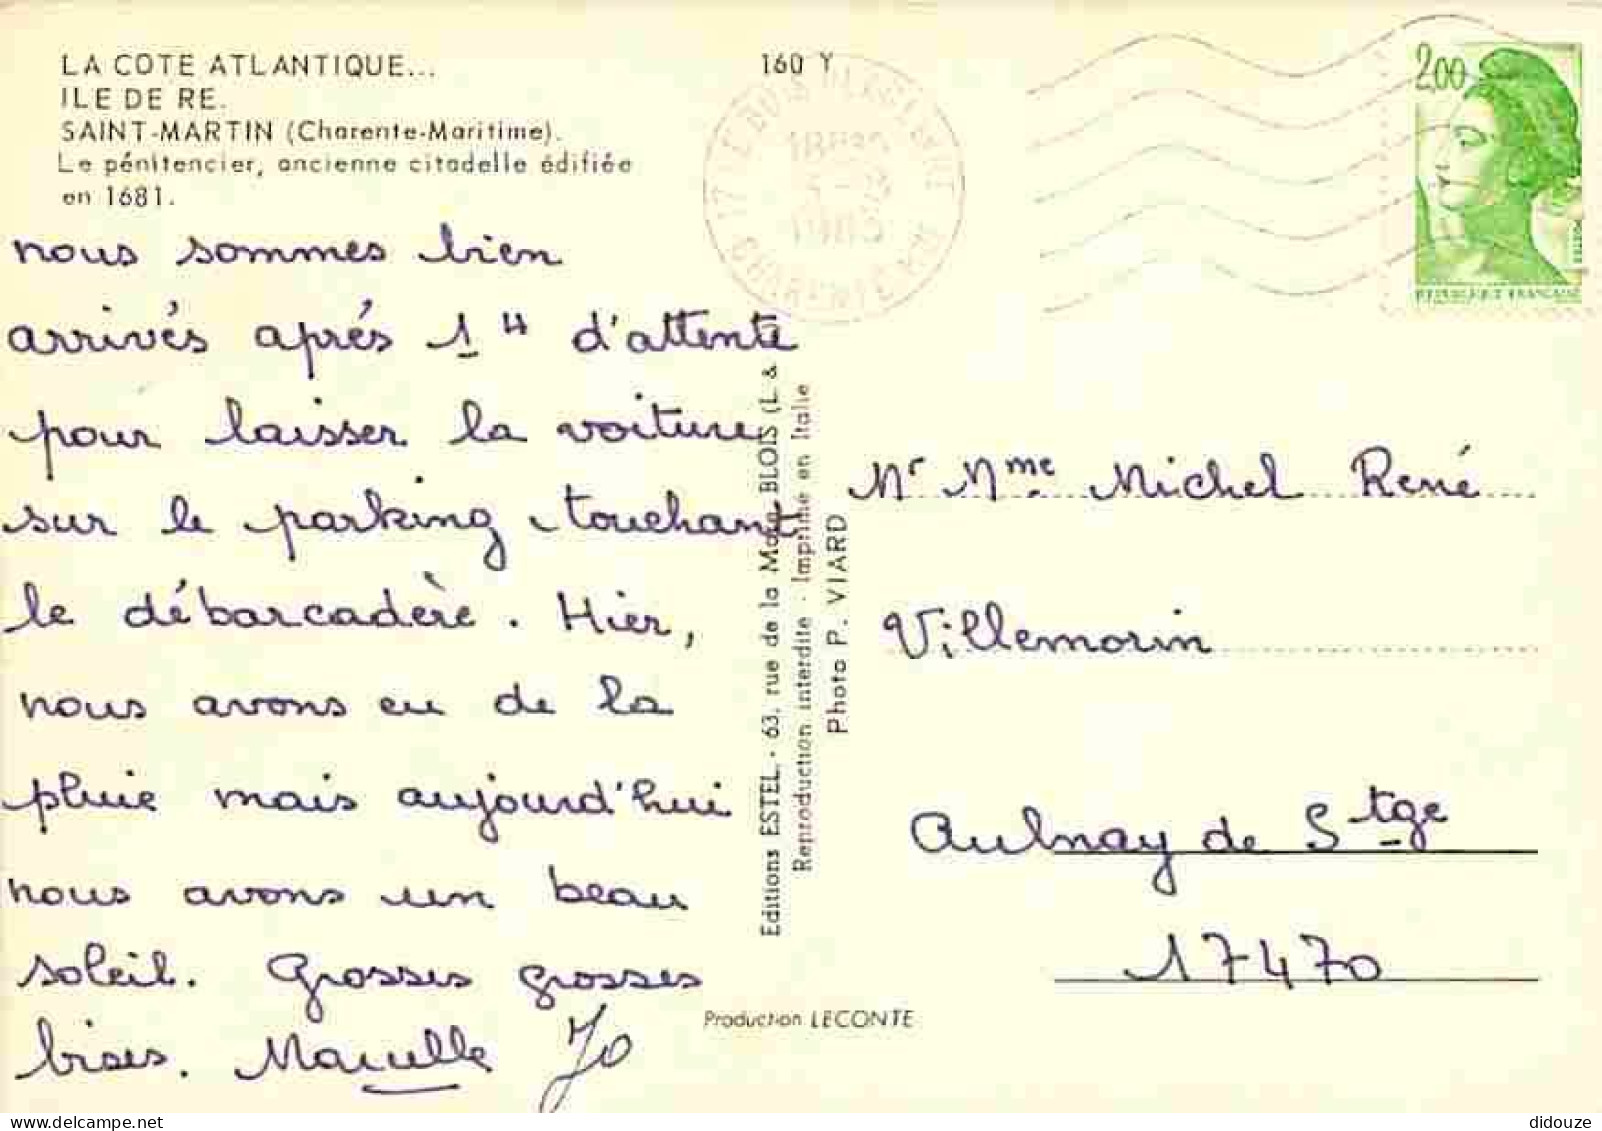 LA COTE ATLANTIQUE...
ILE DE RE.
SAINT-MARTIN (Charente-Maritime).
Le pénitencier, ancienne citadelle édifiée
en 1681.
160 Y
2,00
POSTES
REPUBLIQUE FRANÇAISE
nous sommes bien
arrivés aprés 1H d'attente
pour laisser la voiture
sur le parking touchant
le débarcadère. Hier,
nous avons eu de la
pluie mais aujourd'hui
nous avons un beau
soleil. Grosses grosses
bises. Marcelle Jo
Editions ESTEL - 63, rue de la Mare BLOIS (L. &
Reproduction interdite - Imprimé en Italie
Photo P. VIARD
Mr Mme Michel René
Villemorin
Aulnay de Stge
17470
Production LECONTE
didouze